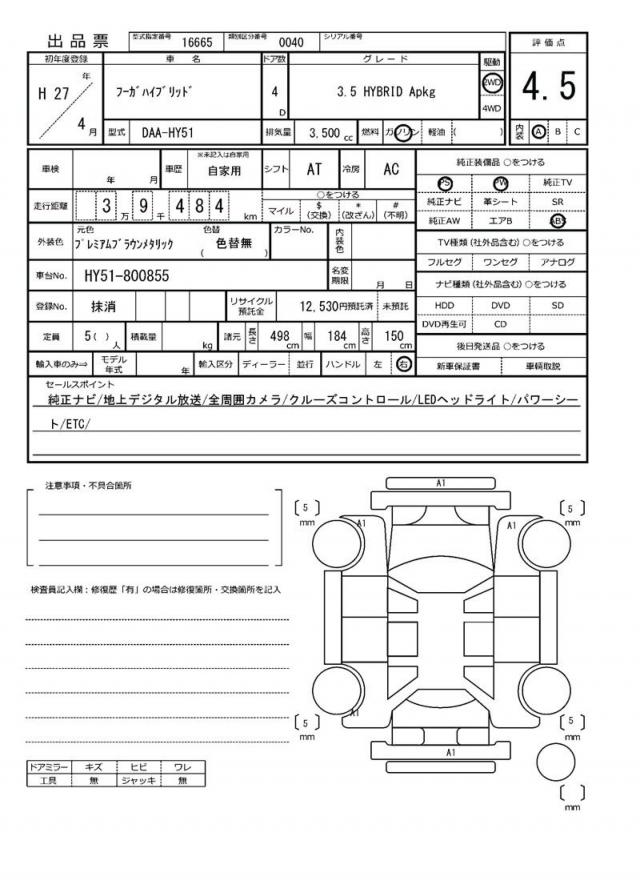 出品票 型式指定番号 16665 類別区分番号 0040 シリアル番号
初年度登録 車 名 ドア数 グレード 駆動 評価点
H 27 年 4 月 フーガハイブリッド 4 D 3.5 HYBRID Apkg 2WD 4WD 4.5
型式 DAA-HY51 排気量 3,500 cc 燃料 ガソリン 軽油 ( ) 内装 A B C
車検 年 月 車歴 ※未記入は自家用 自家用 シフト AT 冷房 AC 純正装備品 ○をつける
PS PW 純正TV
走行距離 3 万 9 千 4 8 4 km ○をつける マイル $ (交換) * (改ざん) # (不明) 純正ナビ 革シート SR
純正AW エアB ABS
外装色 元色 プレミアムブラウンメタリック 色替 色替無 ( ) カラーNo. 内装色 TV種類 (社外品含む) ○をつける
フルセグ ワンセグ アナログ
車台No. HY51-800855 名変期限 月 日 ナビ種類 (社外品含む) ○をつける
登録No. 抹消 リサイクル預託金 12,530円預託済 未預託 HDD DVD SD
DVD再生可 CD
定員 5( ) 人 積載量 kg 諸元 長さ 498 cm 幅 184 cm 高さ 150 cm 後日発送品 ○をつける
輸入車のみ⇒ モデル年式 年 輸入区分 ディーラー 並行 ハンドル 左 右 新車保証書 車輌取説
セールスポイント
純正ナビ/地上デジタル放送/全周囲カメラ/クルーズコントロール/LEDヘッドライト/パワーシー
ト/ETC/
注意事項・不具合箇所
A1
5 mm A1 A1 5 mm
検査員記入欄：修復歴「有」の場合は修復箇所・交換箇所を記入
A1
5 mm 5 mm
A1
mm
ドアミラー キズ ヒビ ワレ
工具 無 ジャッキ 無